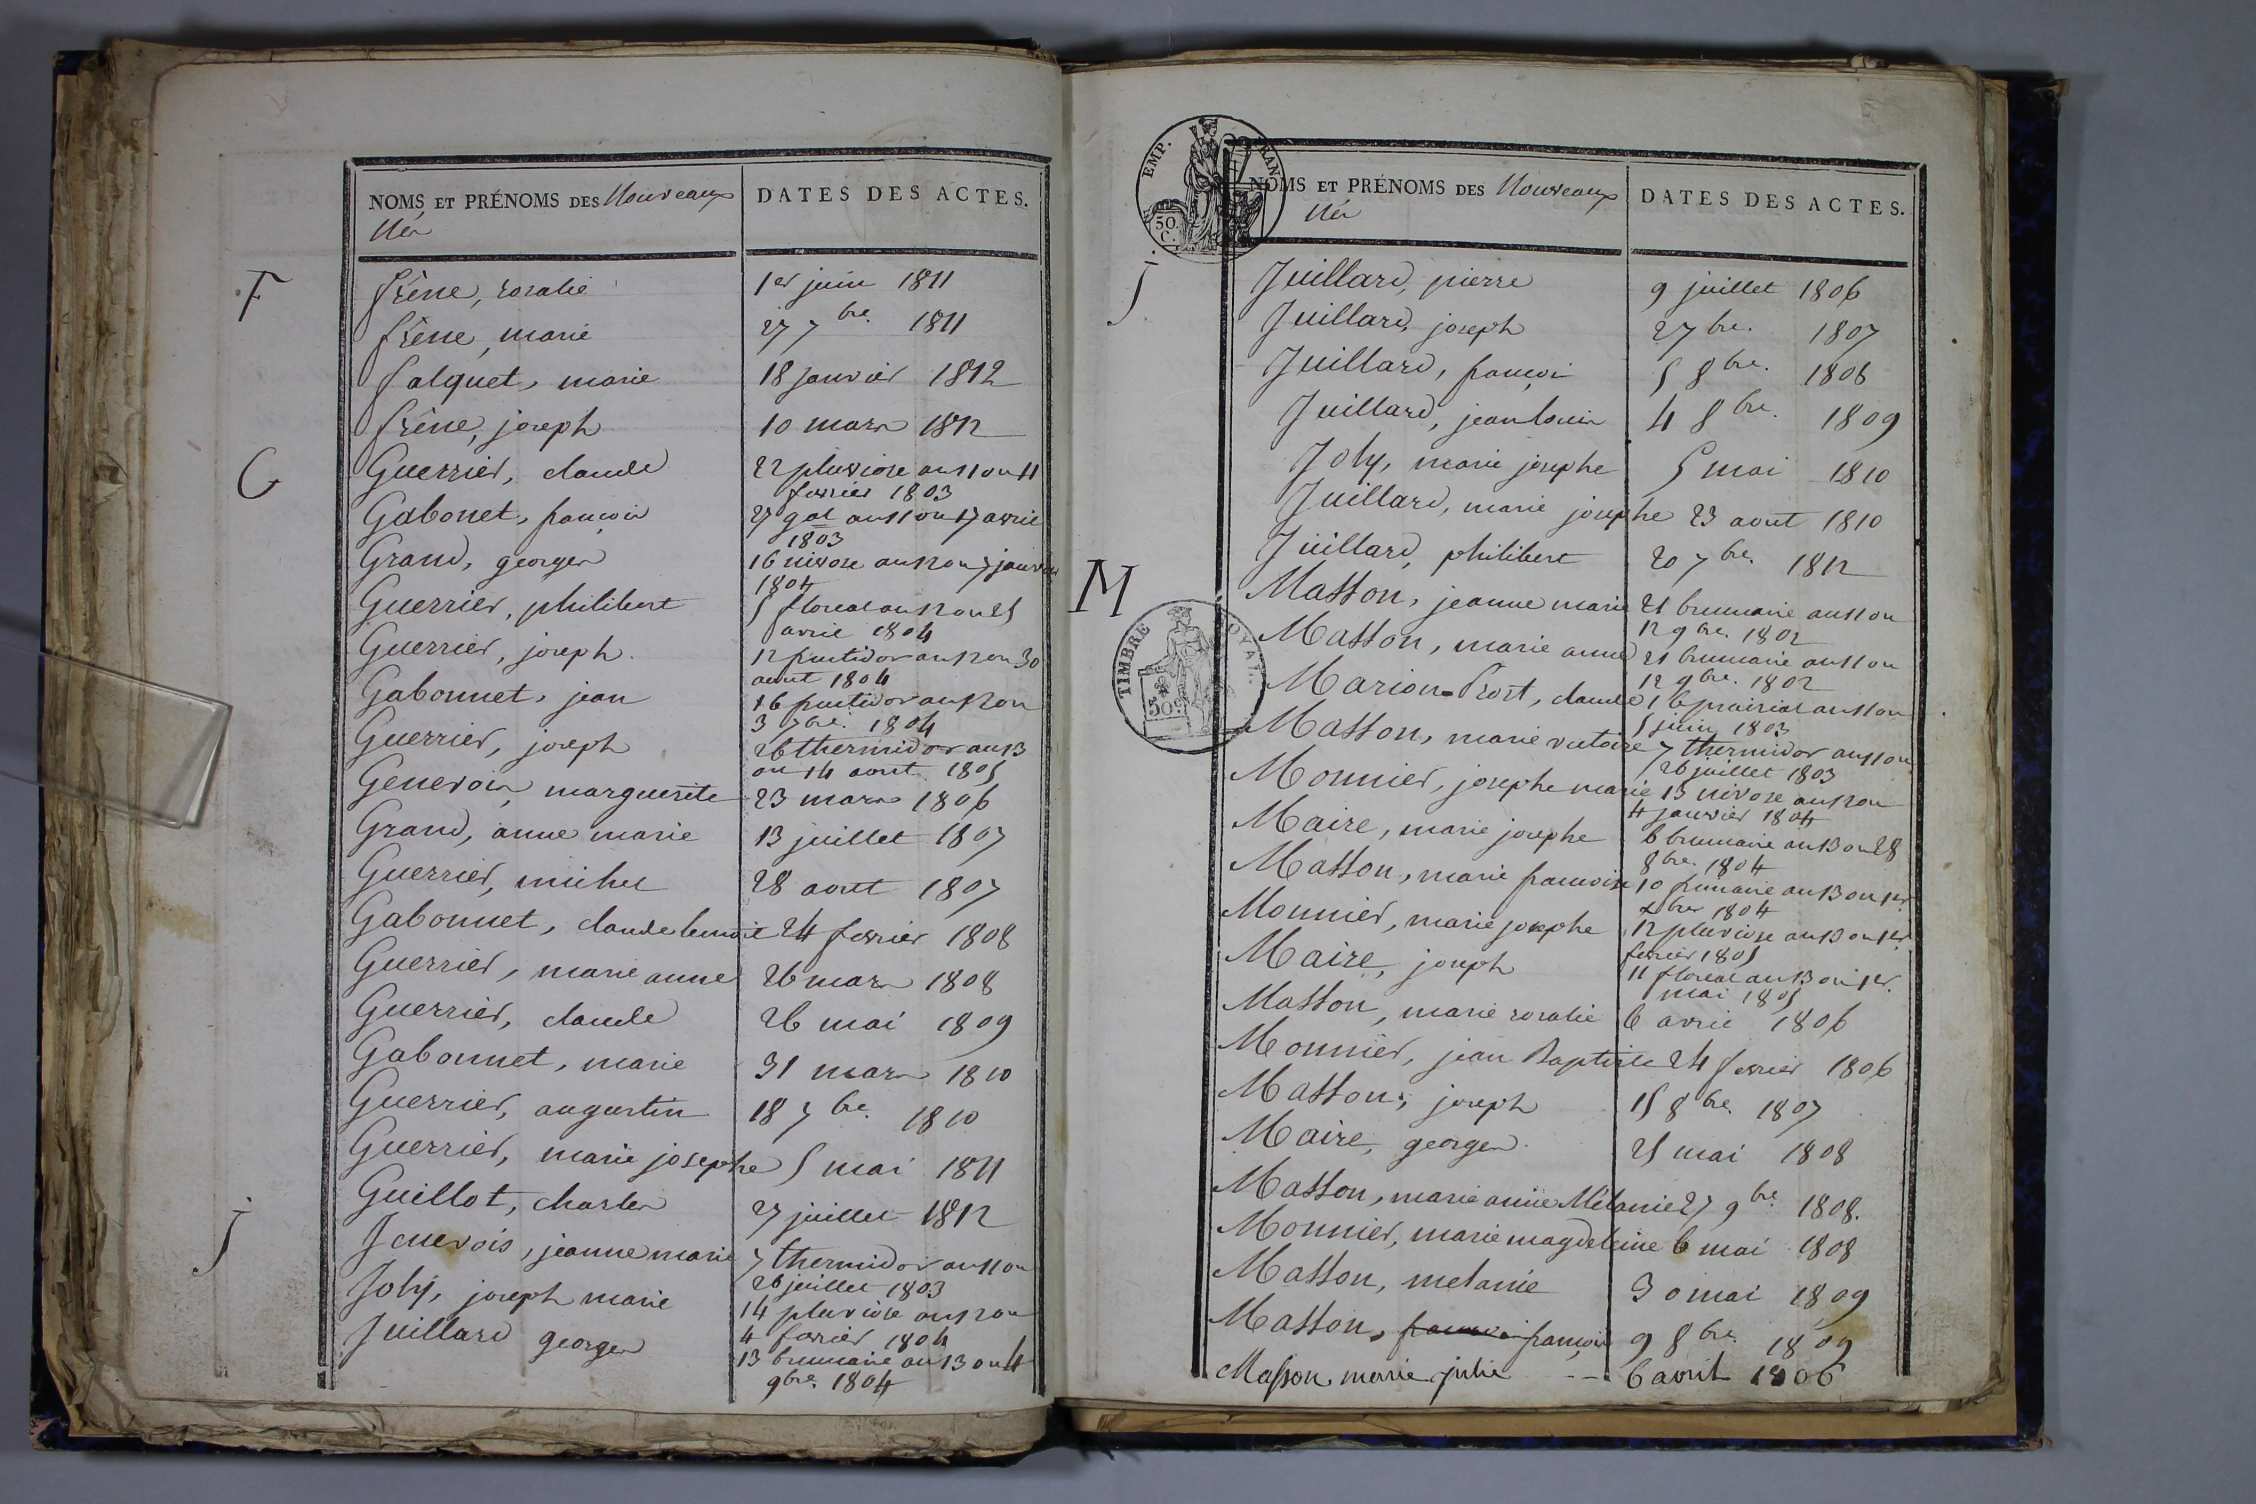 NOMS ET PRÉNOMS DES Nouveaux
Nés
DATES DES ACTES.
F
frêne, rosalie 1er juin 1811
frêne, marie 27 7bre. 1811
falquet, marie 18 janvier 1812
frêne, joseph 10 mars 1812
G
Guerrier, claude 22 pluviose an 11 ou 11
fevrier 1803
Gabonet, françois 27 gal an 11 ou 17 avril
1803
Grand, georges 16 nivose an 12 ou 7 janvier
1804
Guerrier, philibert 5 floreal an 12 ou 25
avril 1804
Guerrier, joseph. 12 fructidor an 12 ou 30
aout 1804
Gabonnet, jean 16 fructidor an 12 ou
3 7bre. 1804
Guerrier, joseph 26 thermidor an 13
ou 14 aout 1805
Genevois, marguerite 23 mars 1806
Grand, anne marie 13 juillet 1807
Guerrier, michel 28 aout 1807
Gabonnet, claude benoit 24 fevrier 1808
Guerrier, marie anne 26 mars 1808
Guerrier, claude 26 mai 1809
Gabonnet, marie 31 mars 1810
Guerrier, augustin 18 7bre. 1810
Guerrier, marie josephe 5 mai 1811
Guillot, charles 27 juillet 1812
J
Jenevois, jeanne marie 7 thermidor an 11 ou
26 juillet 1803
Joly, joseph marie 14 pluviose an 12 ou
4 fevrier 1804
Juillard georges 13 brumaire an 13 ou 4
9bre. 1804
EMP. FRAN.
50.
C.
NOMS ET PRÉNOMS DES Nouveaux
Nés
DATES DES ACTES.
J
Juillard, pierre 9 juillet 1806
Juillard, joseph 2 7bre. 1807
Juillard, françois 5 8bre. 1808
Juillard, jean louis 4 8bre. 1809
Joly, marie josephe 5 mai 1810
Juillard, marie josephe 23 aout 1810
Juillard, philibert 20 7bre. 1812
M
TIMBRE ROYAL.
50c.
Masson, jeanne marie 21 brumaire an 11 ou
12 9bre. 1802
Masson, marie anne 21 brumaire an 11 ou
12 9bre. 1802
Marion-Prost, claude 16 prairial an 11 ou
5 juin 1803
Masson, marie victoire 7 thermidor an 11 ou
26 juillet 1803
Monnier, josephe marie 13 nivose an 12 ou
4 janvier 1804
Maire, marie josephe 6 brumaire an 13 ou 28
8bre. 1804
Masson, marie françoise 10 frimaire an 13 ou 1er.
xbre 1804
Monnier, marie josephe 12 pluviose an 13 ou 1er
fevrier 1805
Maire, joseph 11 floreal an 13 ou 1er.
mai 1805
Masson, marie rosalie 6 avril 1806
Monnier, jean Baptiste 24 fevrier 1806
Masson, joseph 15 8bre. 1807
Maire, georges. 25 mai 1808
Masson, marie anne Mélanie 27 9bre 1808.
Monnier, marie magdeleine 6 mai 1808
Masson, melanie 30 mai 1809
Masson, françois françois 9 8bre. 1809
Masson marie julie -- 6 avril 1806